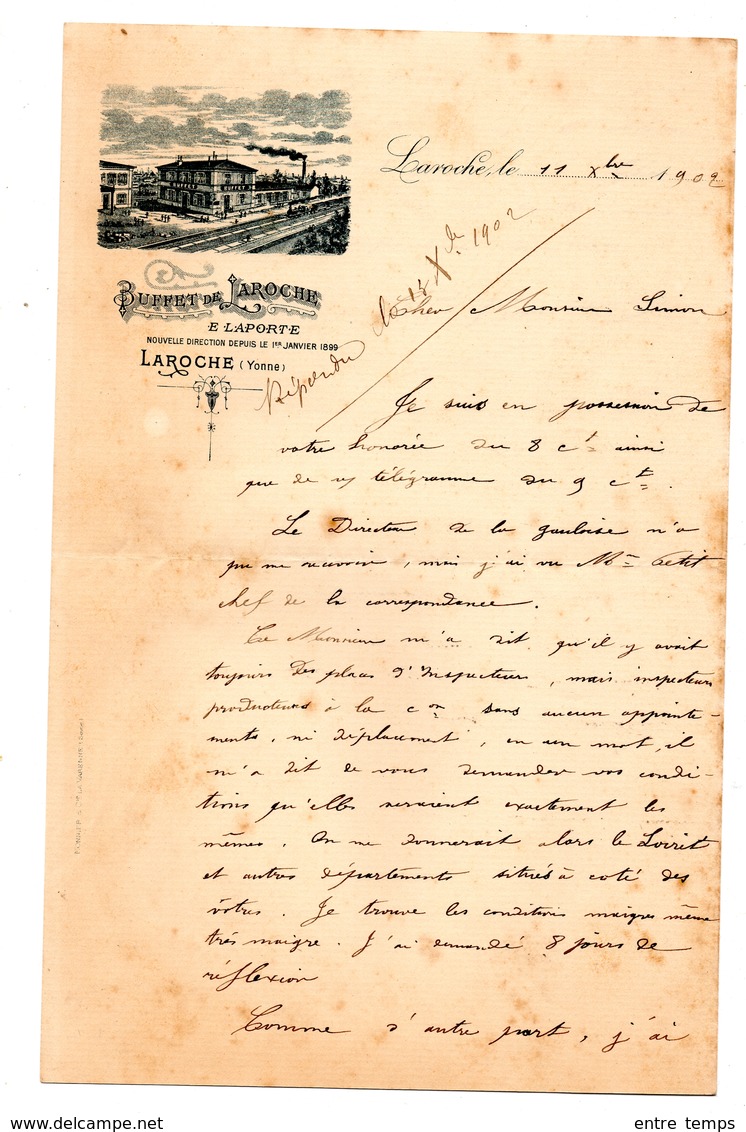 BUFFET
BUFFET
Laroche, le 11 Xbre 1902
BUFFET DE LAROCHE
E LAPORTE
NOUVELLE DIRECTION DEPUIS LE 1ER JANVIER 1899
LAROCHE (Yonne)
Répondu le 18 Xbre 1902
Cher Monsieur Simon
Je suis en possession de
votre honorée du 8 ct ainsi
que de v/ télégramme du 9 ct
Le Directeur de la gauloise n'a
pu me recevoir, mais j'ai vu Mr Petit
chef de la correspondance.
Ce Monsieur m'a dit qu'il y avait
toujours des places d'Inspecteurs, mais inspecteurs
producteurs à la con sans aucun appointe-
ments, ni déplacement, en un mot, il
m'a dit de vous demander vos condi-
tions qu'elles seraient exactement les
mêmes. On me donnerait alors le Loiret
et autres départements situés à coté des
vôtres. Je trouve les conditions maigres même
très maigre. J'ai demandé 8 jours de
réflexion
Comme d'autre part, j'ai
entre temps